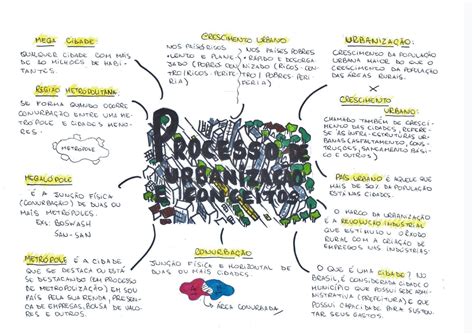 MEGA CIDADE:
QUALQUER CIDADE COM MAIS
DE 10 MILHÕES DE HABI-
TANTES.
REGIÃO METROPOLITANA:
SE FORMA QUANDO OCORRE
CONURBAÇÃO ENTRE UMA ME-
TRÓPOLE E CIDADES MENO-
RES.
METRÓPOLE
MEGALÓPOLE
É A JUNÇÃO FÍSICA
(CONURBAÇÃO) DE DUAS OU
MAIS METRÓPOLES.
EX: BOSWASH
SAN-SAN
METRÓPOLE É A CIDADE
QUE SE DESTACA OU ESTÁ
SE DESTACANDO (EM PROCESSO
DE METROPOLIZAÇÃO) EM SEU
PAÍS PELA SUA RENDA, PRESEN-
ÇA DE EMPRESAS, BOLSA DE VALO-
RES E OUTROS.
CRESCIMENTO URBANO
NOS PAÍSES RICOS
LENTO E PLANE-
JADO (POBRES CEN-
TRO/RICOS-PERIFE-
RIA)
NOS PAÍSES POBRES
RÁPIDO E DESORGA-
NIZADO (RICOS-CEN-
TRO/POBRES-PERI-
FERIA)
PROCESSO DE
URBANIZAÇÃO
E CONCEITOS
CONURBAÇÃO
JUNÇÃO FÍSICA E HORIZONTAL DE
DUAS OU MAIS CIDADES.
ÁREA CONURBADA
URBANIZAÇÃO:
CRESCIMENTO DA POPULAÇÃO
URBANA MAIOR DO QUE O
CRESCIMENTO DA POPULAÇÃO
DAS ÁREAS RURAIS.
X
CRESCIMENTO
URBANO:
CHAMADO TAMBÉM DE CRESCI-
MENTO DAS CIDADES, REFERE-
SE ÀS INFRA-ESTRUTURAS UR-
BANAS (ASFALTAMENTO, CONS-
TRUÇÕES, SANEAMENTO BÁSI-
CO E OUTROS)
PAÍS URBANO É AQUELE QUE
MAIS DE 50% DA POPULAÇÃO
ESTÁ NAS CIDADES.
O MARCO DA URBANIZAÇÃO
É A REVOLUÇÃO INDUSTRIAL
QUE ESTIMULOU O ÊXODO
RURAL COM A CRIAÇÃO DE
EMPREGOS NAS INDÚSTRIAS.
O QUE É UMA CIDADE? NO
BRASIL, É CONSIDERADA CIDADE O
MUNICÍPIO QUE POSSUI SEDE ADMI-
NISTRATIVA (PREFEITURA) E QUE
POSSUI CAPACIDADE PARA SUSTEN-
TAR SEUS GASTOS.